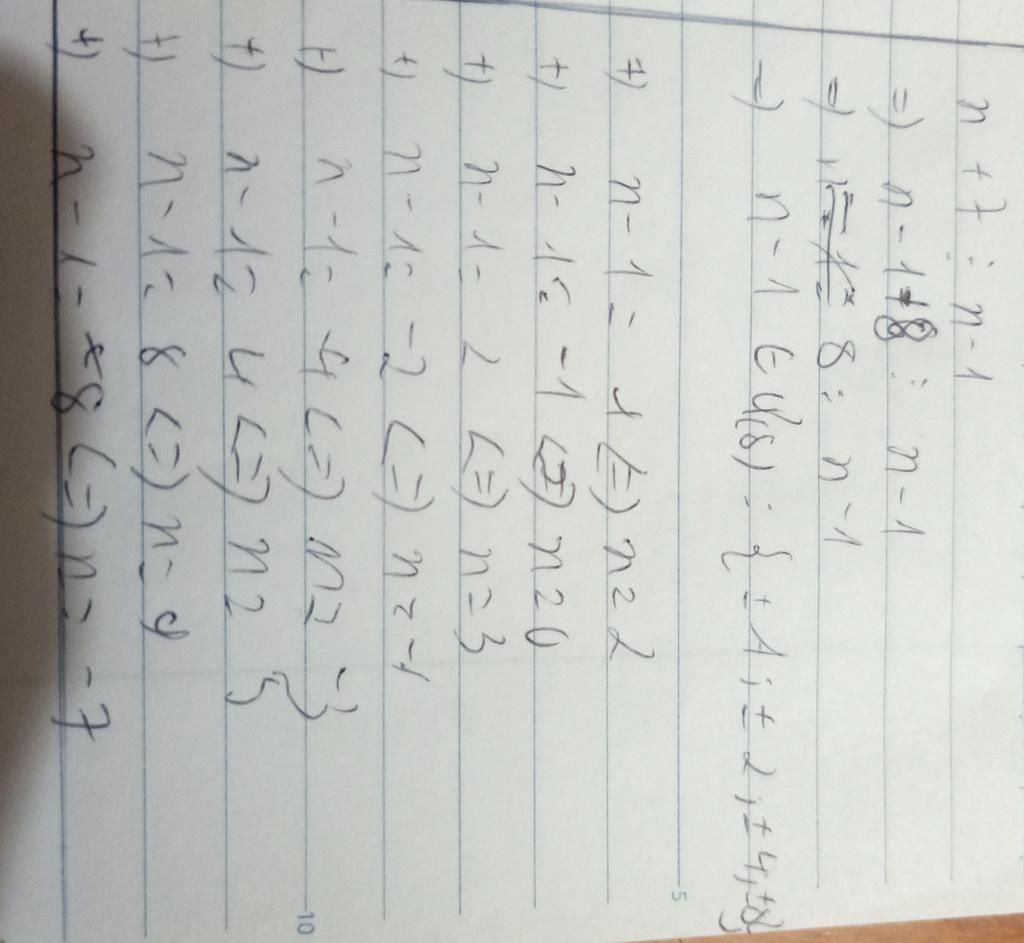 n + 7 ⋮ n - 1
=) n - 1 + 8 ⋮ n - 1
=) 8 ⋮ n - 1
=) n - 1 ∈ Ư(8) = { ± 1; ± 2; ± 4; ± 8}
+) n - 1 = 1 (=) n = 2
+) n - 1 = -1 (=) n = 0
+) n - 1 = 2 (=) n = 3
+) n - 1 = -2 (=) n = -1
+) n - 1 = -4 (=) n = -3
+) n - 1 = 4 (=) n = 5
+) n - 1 = 8 (=) n = 9
+) n - 1 = -8 (=) n = -7
5
10